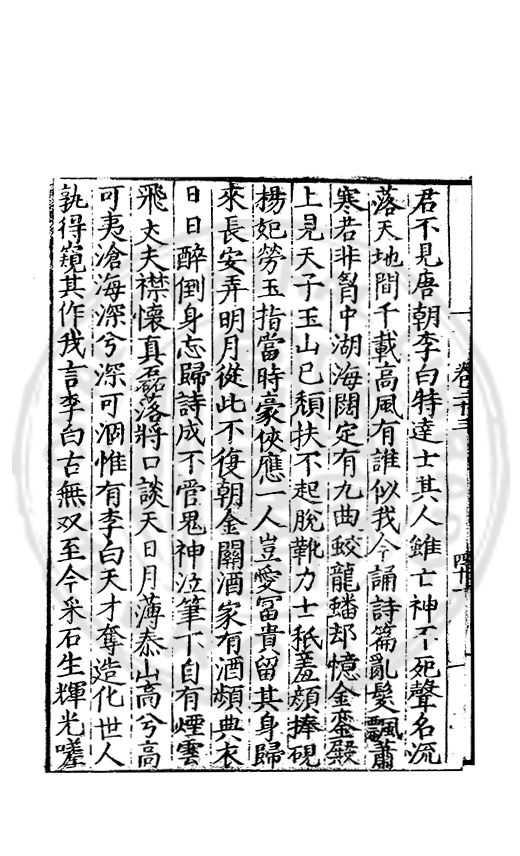 卷三十三
四十一
君不見唐朝李白特達士其人雖亡神不死聲名流
落天地間千載高風有誰似我今誦詩篇亂髮飄蕭
寒若非胷中湖海闊定有九曲蛟龍蟠却憶金鑾殿
上見天子玉山已頹扶不起脫靴力士秪羞顔捧硯
楊妃勞玉指當時豪俠應一人豈愛冨貴留其身歸
來長安弄明月從此不復朝金闕酒家有酒頻典衣
日日醉倒身忘歸詩成不管鬼神泣筆下自有煙雲
飛丈夫襟懷真磊落將口談天日月薄泰山高兮高
可夷滄海深兮深可涸惟有李白天才奪造化世人
孰得窺其作我言李白古無双至今采石生輝光嗟